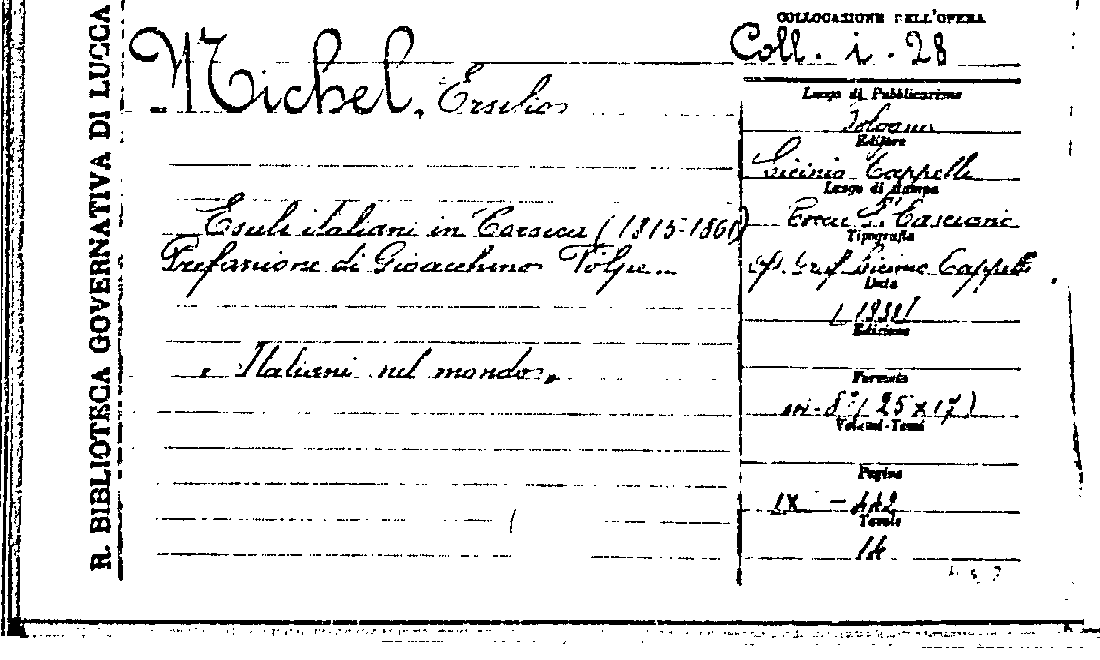 R. BIBLIOTECA GOVERNATIVA DI LUCCA
Michel, Ersilio
Esuli italiani in Corsica (1815-1861)
Prefazione di Gioacchino Volpe
"Italiani nel mondo"
COLLOCAZIONE DELL'OPERA
Coll. i. 28
Luogo di Pubblicazione
Bologna
Editore
Licinio Cappelli
Luogo di stampa
Rocca S. Casciano
Tipografia
Licinio Cappelli
Data
Edizione
Formato
in-8° (25 x 17)
Volumi-Tomi
Pagine
IX - 442
Tavole
14